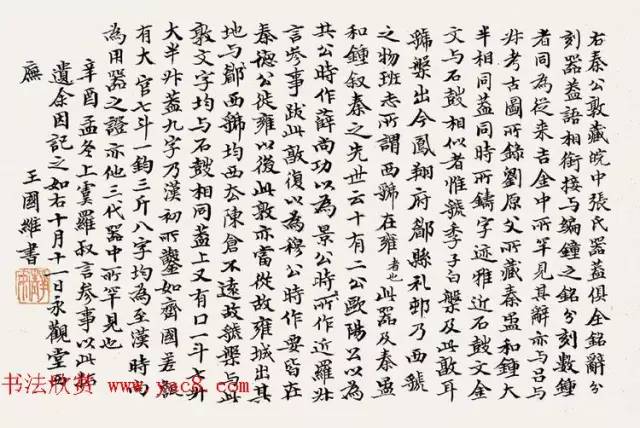 右秦公敦藏皖中張氏器蓋俱全銘辭分
刻器蓋語相銜接与編鐘之銘分刻數鐘
者同為從来吉金中所罕見其辭亦与吕与
叔考古圖所錄劉原父所藏秦盄和鐘大
半相同蓋同時所鑄字迹雅近石鼓文金
文与石鼓相似者惟虢季子白槃及此敦耳
虢槃出今鳳翔府郿縣礼邨乃西虢
之物班志所謂西虢在雍者也此器及秦盄
和鍾叙秦之先世云十有二公歐陽公以為
共公時作薛尚功以為景公時所作近羅叔
言參事跋此敦復以為穆公時作要皆在
秦德公徙雍以後此敦亦當從故雍城出其
地与郿西虢均西去陳倉不遠故虢槃与此
敦文字均与石鼓相同蓋上又有口一斗七升
大半升蓋九字乃漢初所鑿如齊國差
有大官七斗一鈞三斤八字均為至漢時尚
為用器之證亦他三代器中所罕見也
辛酉孟冬上虞羅叔言參事以此拓
遺余因記之如右十月十一日永觀堂西
廡
王國維書
书法欣赏 www.yac8.com